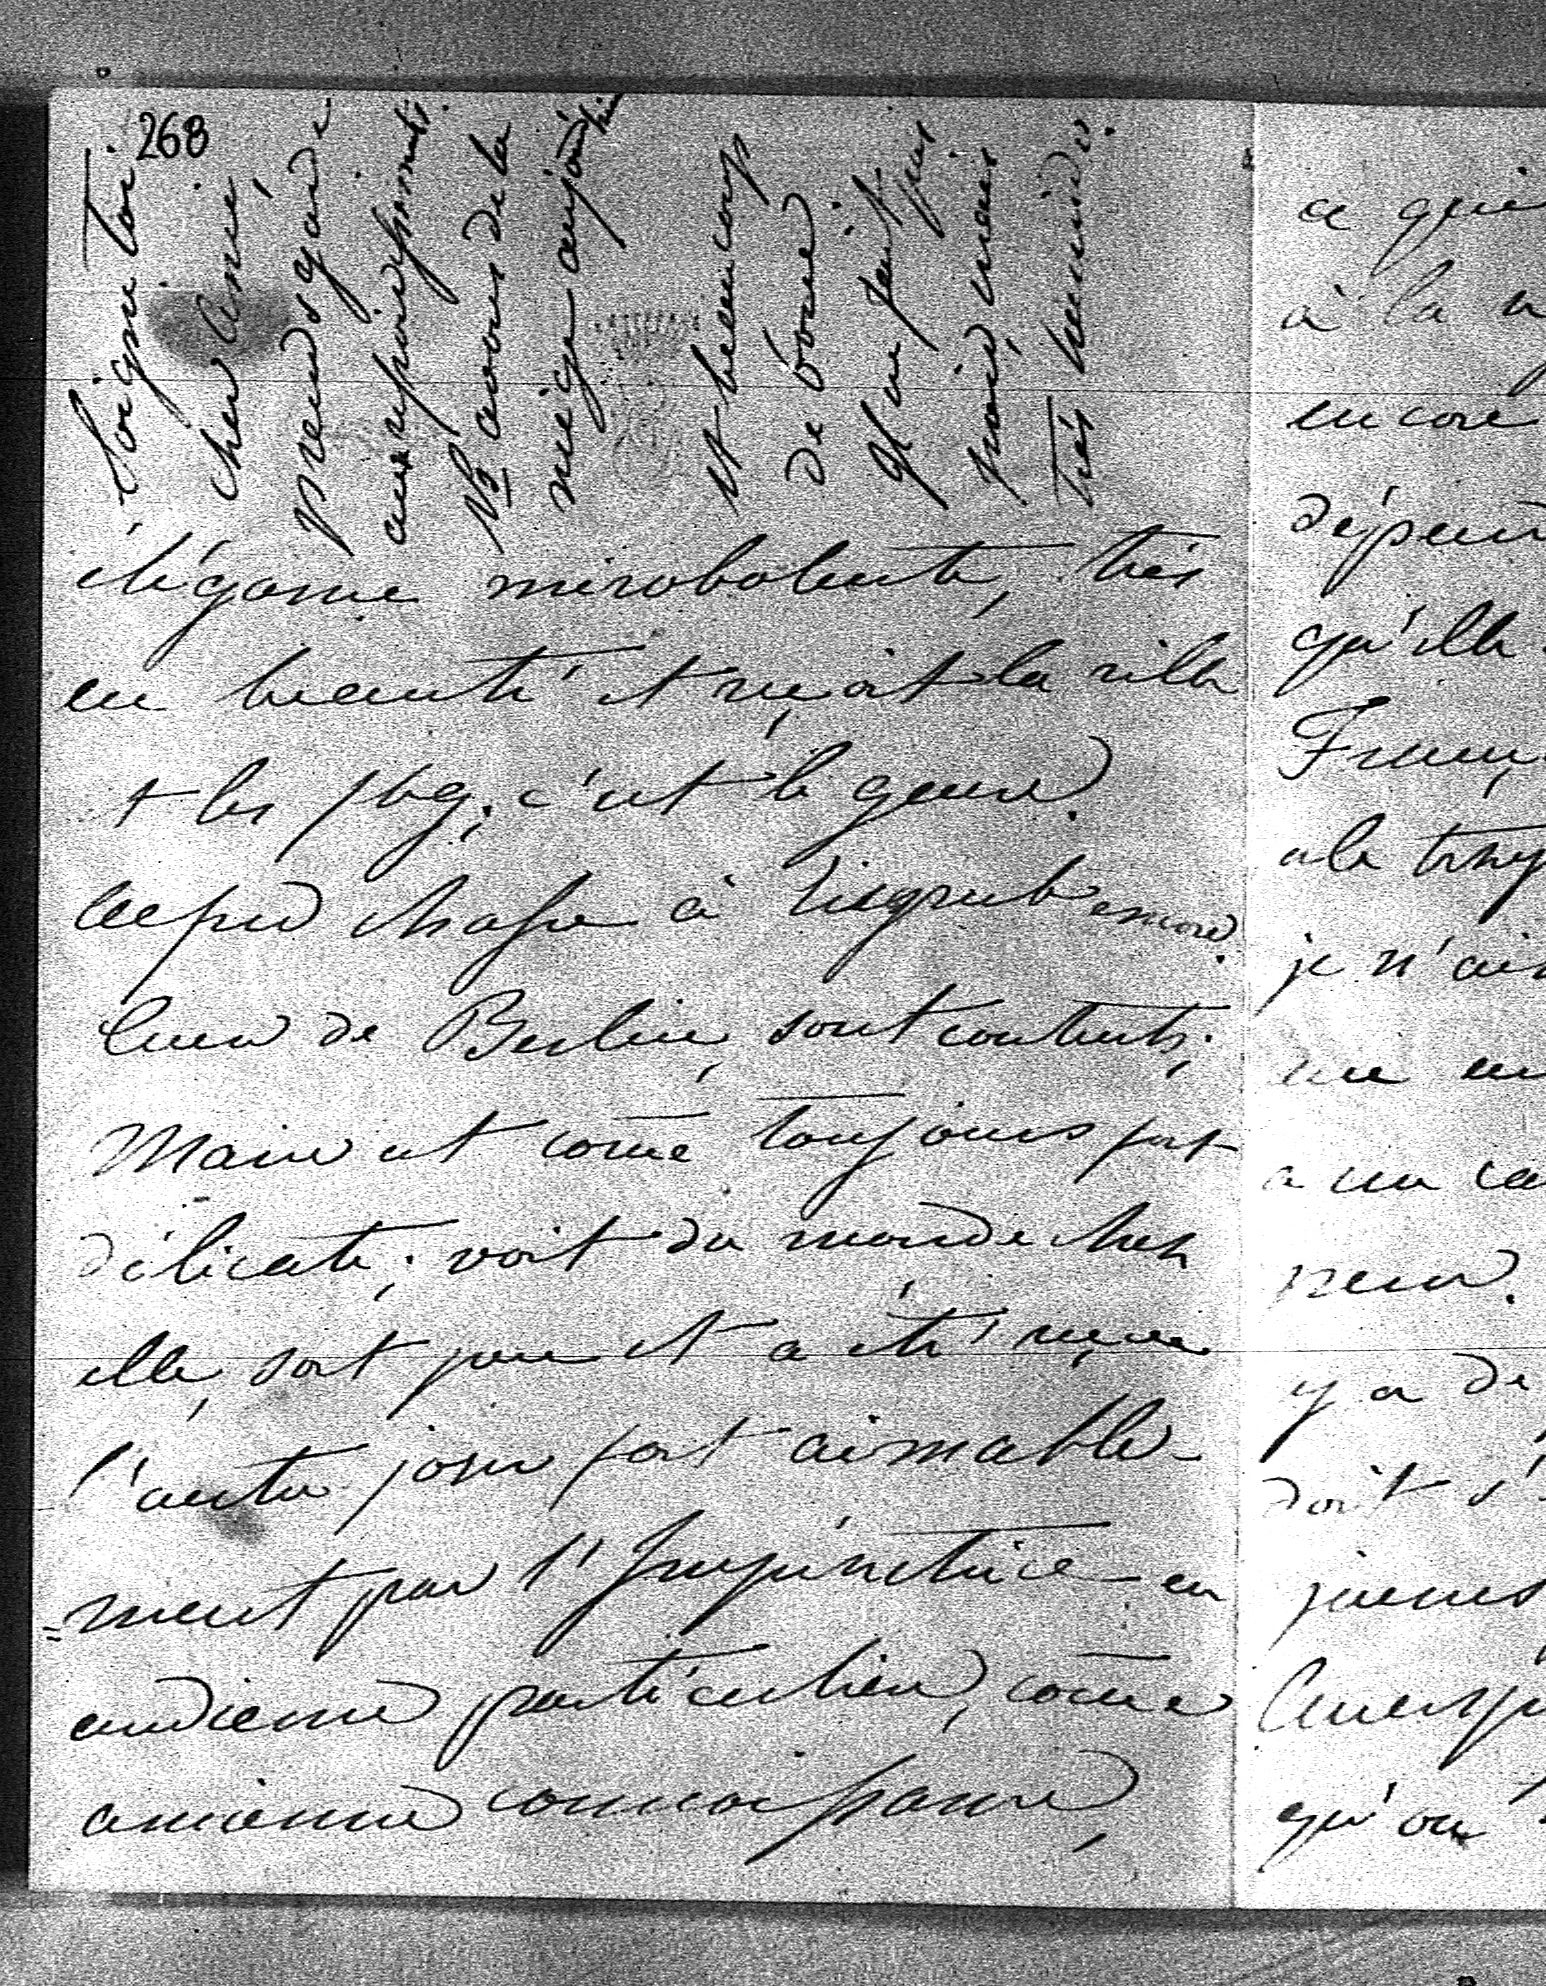 268
Soigne toi
cher Aimé,
prends garde
aux refroidissements.
Ns avons de la
neige aujourd'hui
et beaucoup
de boue.
Il ne fait pas
froid, mais
très humide.
élégance mirobolante, très
en beauté et reçoit la ville
et les fbg; c'est le genre.
chasse à encore.
Ceux de Berlin, sont contents;
Marie est come toujours fort
délicate; voit du monde chez
elle, sort peu et a été reçue
l'autre jour fort aimable-
=ment par l'Impératrice en
audience particulière, come
ancienne connaissance,
ce qui
à la
encore
qu'elle
a le temps
je n'ai
a un ca
peur.
y a de
doit s'
jeunes
qu'on